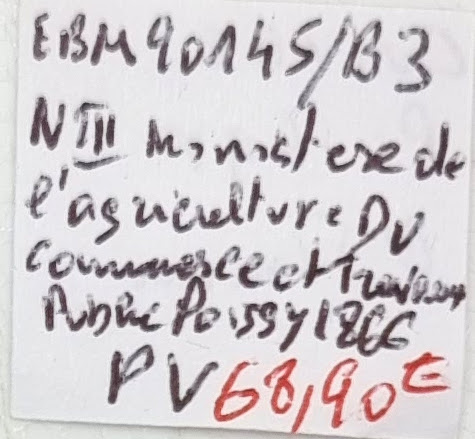 EBM90145/B3
N III Ministere de
l'agriculture DU
commerce et Travaux
Public Poissy 1866
PV 68,90€